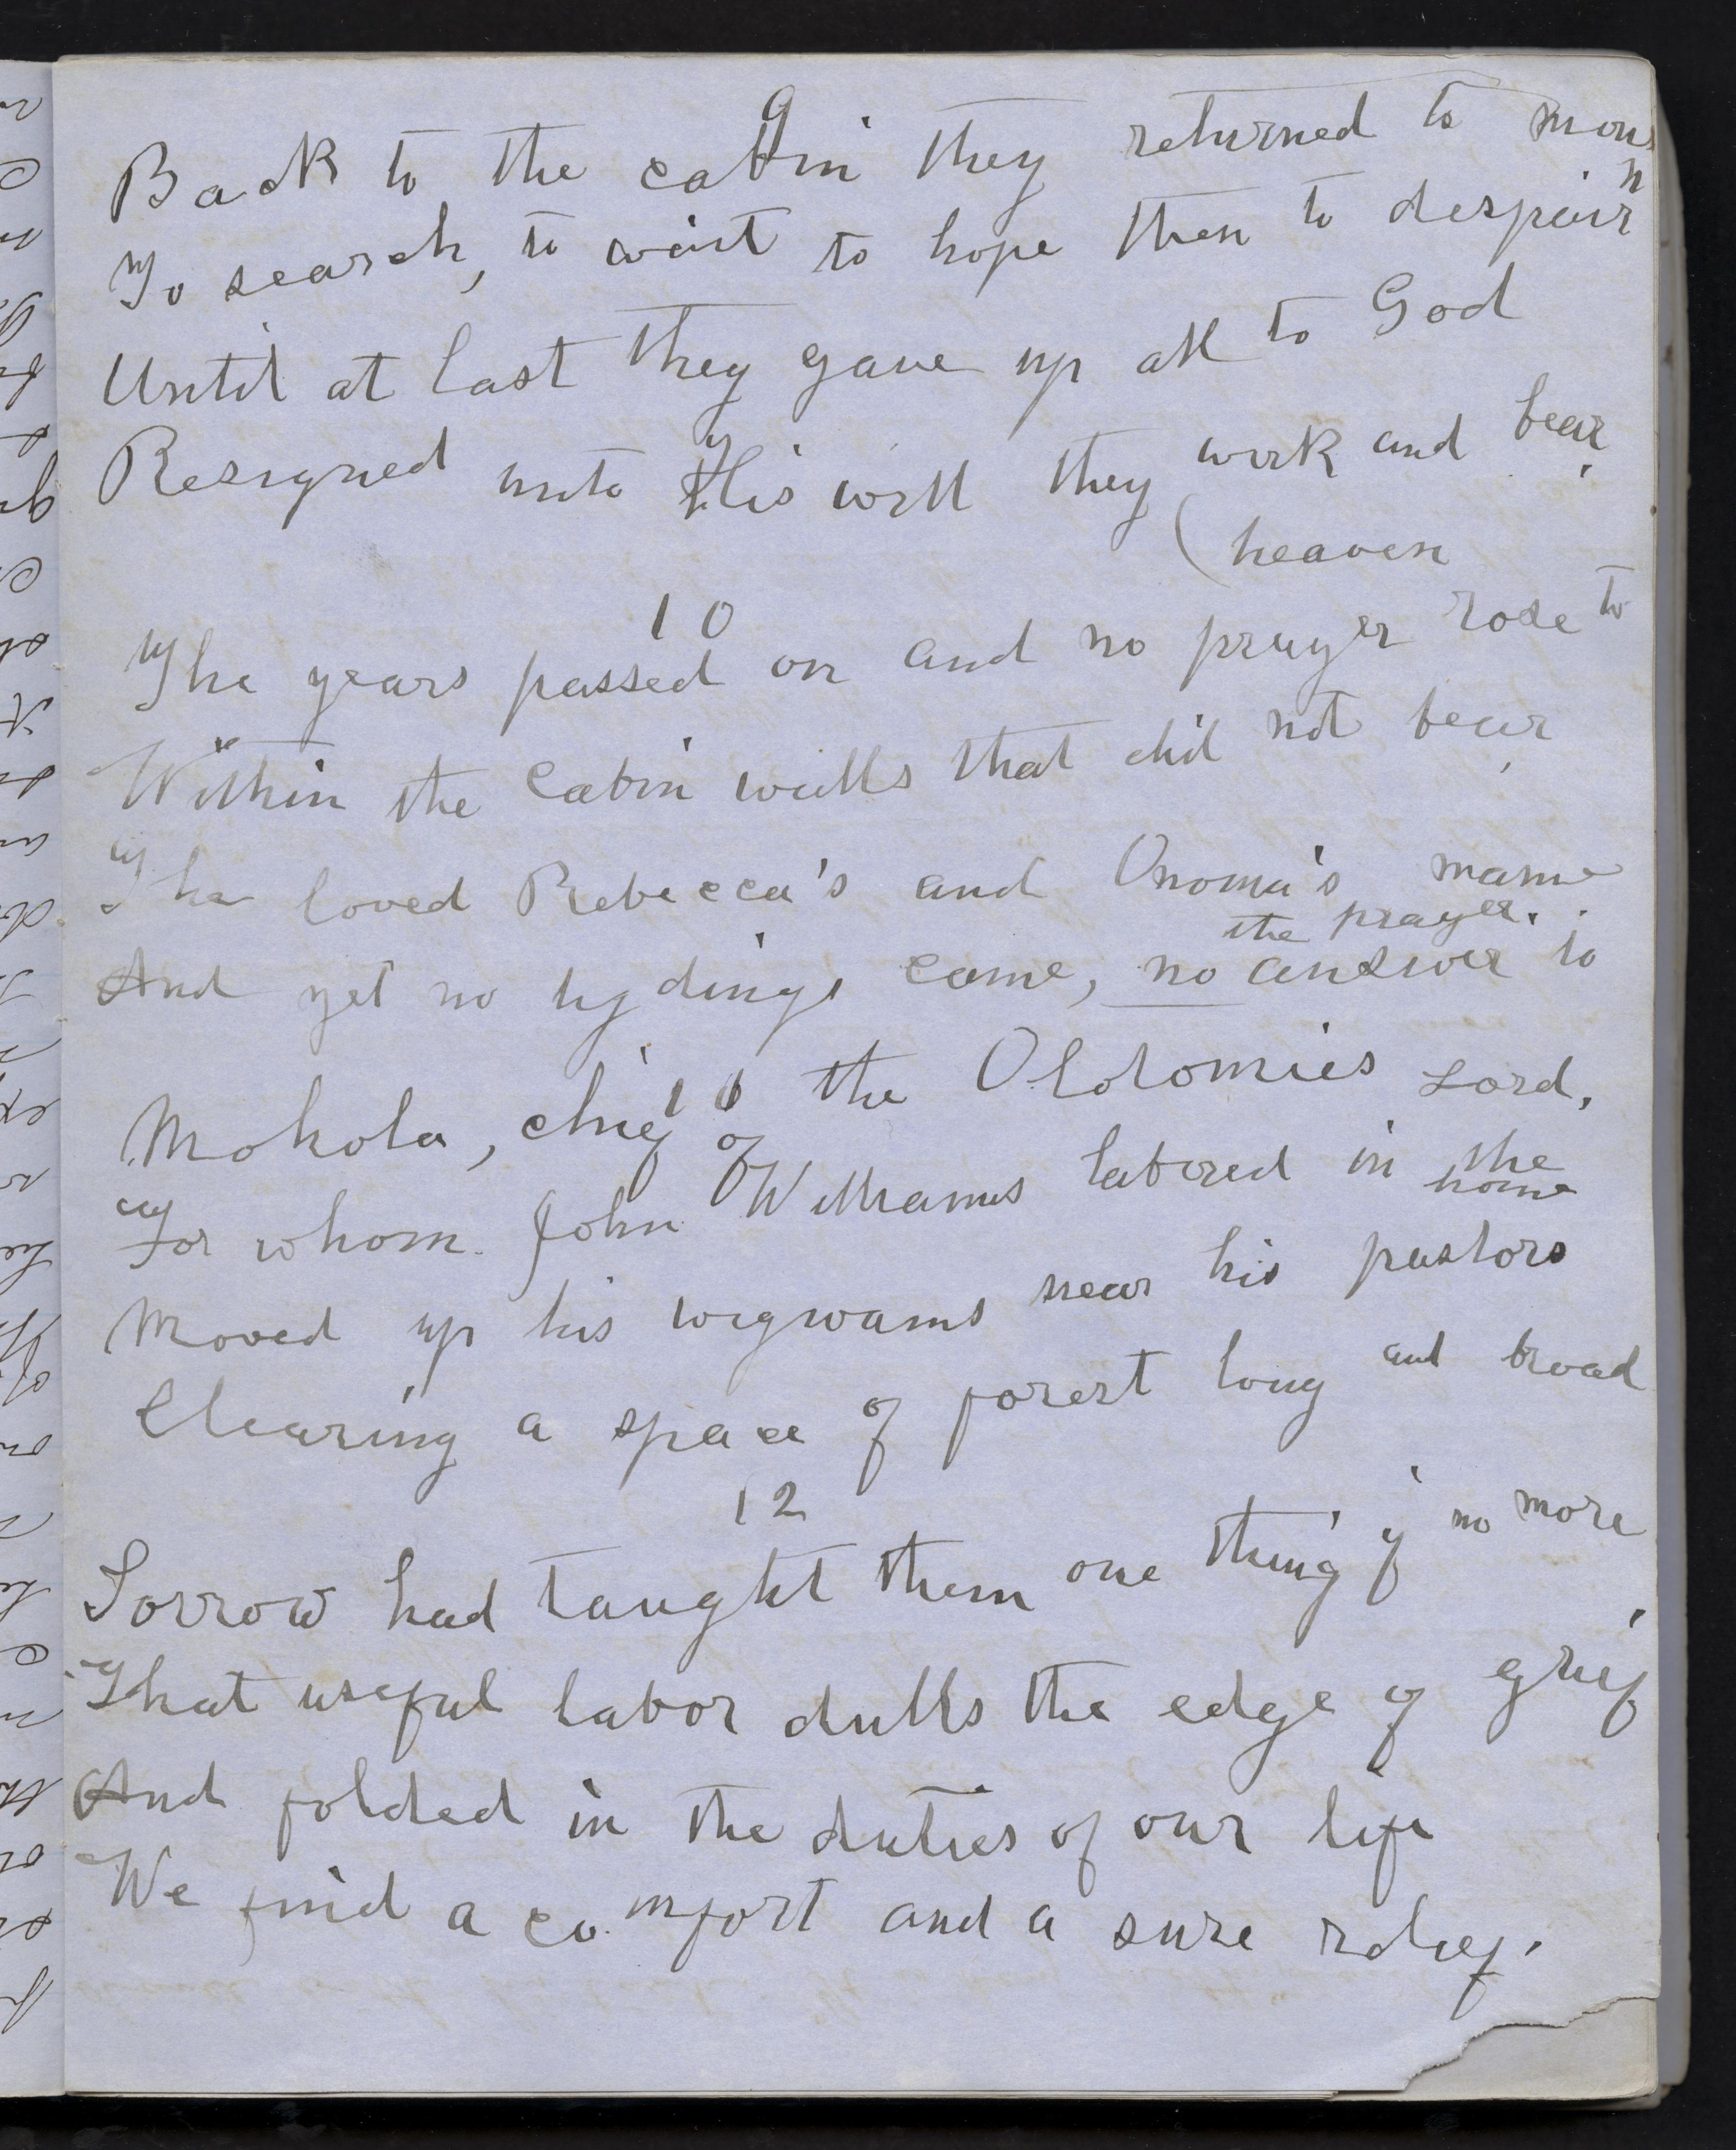 9
Back to the cabin they returned to mourn
To search, to wait to hope then to despair
Until at last they gave up all to God
Resigned unto His will they work and bear.
(heaven
10
The years passed on and no prayer rose to
Within the cabin walls that did not bear,
The loved Rebecca's and Onoma's name
the prayer.
And yet no tydings came, no answer to
11
Mohola, chief of the Olotomies Lord,
For whom John Williams labored in the
home
Moved up his wigwams near his pastors
Clearing a space of forest long and broad
12
Sorrow had taught them one thing if no more
That useful labor dulls the edge of grief
And folded in the duties of our life
We find a comfort and a sure relief.